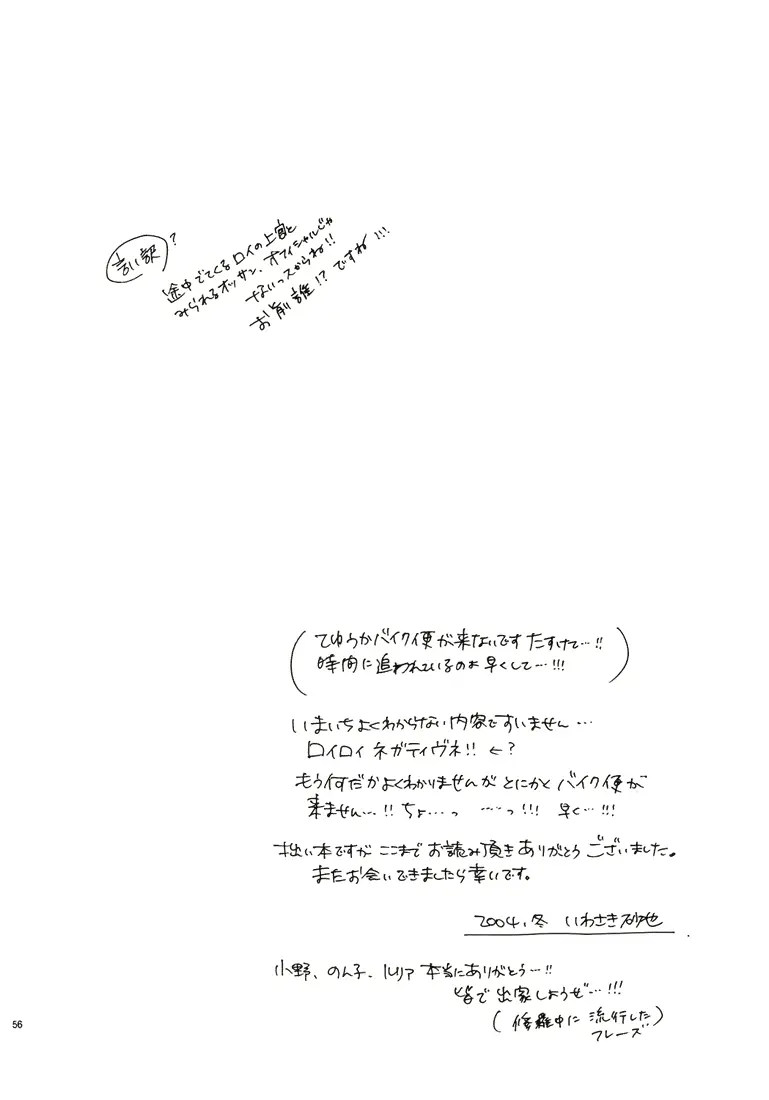 言い訳?
途中ででてくるロイの上官と
みられるオッサン、オフィシャルじゃ
ないっスからね!!
お前誰!?ですね!!!
(てゆうかバイク便が来ないです たすけて…!!
時間に追われているのお早くして…!!!)
いまいちよくわからない内容ですいません…
ロイロイ ネガティヴネ!! ←?
もう何だかよくわかりませんが とにかく バイク便が
来ません…!! ちょ…っ ……っ!!! 早く…!!!
拙い本ですが ここまで お読み頂き ありがとう ございました。
またお会いできましたら幸いです。
2004.冬 いわさき砂也
小野、のん子、ルリア 本当にありがとう…!!
皆で出家しようぜ…!!!
(修羅中に流行した
フレーズ)
56